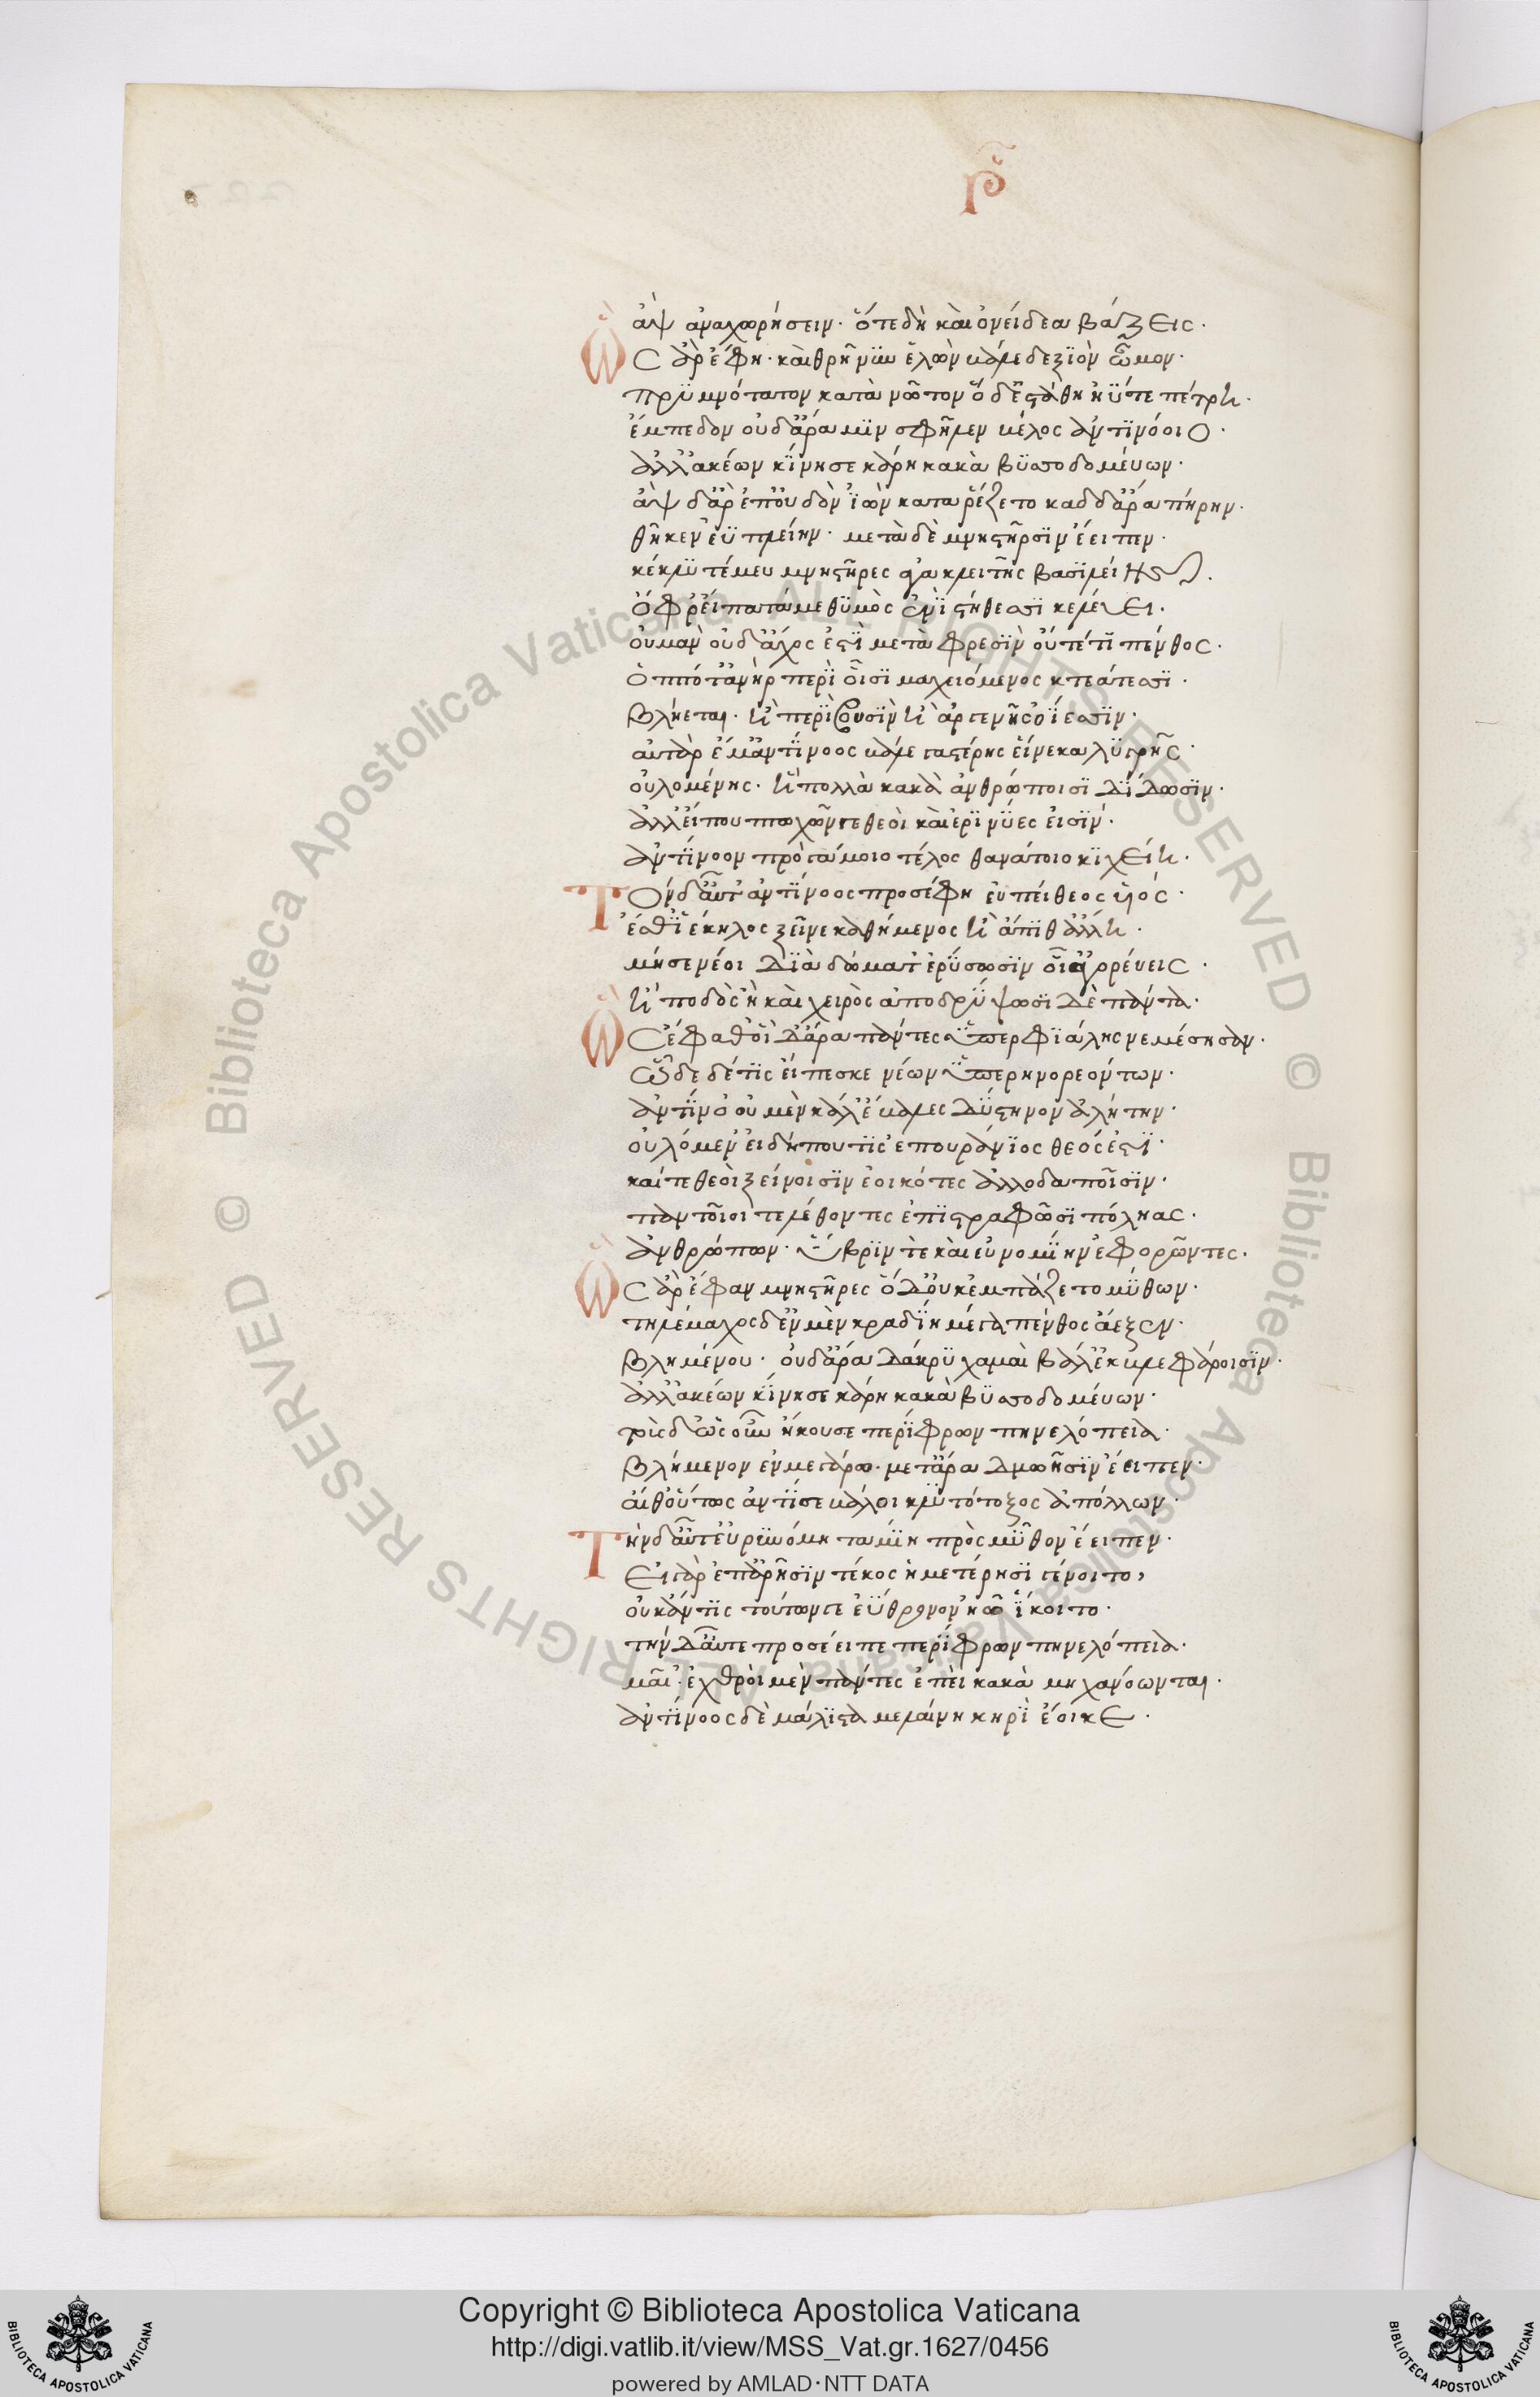 ρ
ἂψ ἀναχωρήσειν· ὅτε δὴ καὶ ὀνείδεα βάζεις·
Ὣς ἂρ ἔφη· καὶ θρῆνϋν ἑλὼν βάλε δεξϊὸν ὦμον·
πρϋμνότατον κατὰ νῶτον ὁ δ' ἐστάθη ἠΰτε πέτρη·
ἔμπεδον οὐδ' ἄρα μϊν σφῆλεν βέλος ἀντϊνόοιο·
ἀλλ' ἀκέων κΐνησε κάρη κακὰ βϋσσοδομέυων·
ἂψ δ' ἂρ ἐπ' οὐδὸν ἰὼν κατ' ἂρ ἕζετο καδδ' ἄρα πήρην·
θῆκεν ἐϋπλείην· μετὰ δὲ μνηστῆρσϊν ἔειπεν·
κέκλϋτέ μευ μνηστῆρες ἀγακλειτῆς βασϊλείης·
ὄφρ' εἴπω τά με θϋμὸς ἐνὶ στήθεσσϊ κελέυει·
οὐ μὰν οὐδ' ἄχος ἐστὶ μετὰ φρεσϊν οὔτέ τϊ πένθος·
ὁππότ' ἀνὴρ περὶ οἷσϊ μαχειόμενος κτεάτεσσϊ·
βλήεται· ἢ περὶ βουσϊν ἢ ἀργεννῆς ὀΐεσσϊν·
αὐτὰρ ἔμ' ἀντΐνοος βάλε γαστέρης εἵνεκα λϋγρῆς·
οὐλομένης· ἣ πολλὰ κακὰ ἀνθρώποισϊ δΐδωσϊν·
ἀλλ' εἴ που πτωχῶν γε θεοὶ καὶ ἐρϊνϋες εἰσϊν·
ἀντΐνοον πρὸ γάμοιο τέλος θανάτοιο κϊχείη·
Τὸν δ' αὖτ' ἀντΐνοος προσέφη εὐπείθεος υἱός·
ἔσθϊ' ἕκηλος ξεῖνε καθήμενος ἢ ἄπϊθ' ἄλλη·
μή σε νέοι δϊὰ δώματ' ἐρΰσωσϊν οἷ' ἀγορέυεις·
ἢ ποδὸς ἢ καὶ χειρὸς ἀποδρΰψωσϊ δὲ πάντα·
Ὣς ἔφαθ' οἳ δ' ἄρα πάντες ὑπερφϊάλης νεμέσησαν·
ὧδε δέ τϊς εἴπεσκε νέων ὑπερηνορεόντων·
ἀντΐν' οὐ μὲν κάλ' ἔβαλες δΰστηνον ἀλήτην·
οὐλόμεν' εἰ δή πού τϊς ἐπουράνϊος θεός ἐστϊ·
καί τε θεοὶ ξείνοισϊν ἐοικότες ἀλλοδαποῖσϊν·
παντοῖοι τελέθοντες ἐπϊστραφῶσϊ πόληας·
ἀνθρώπων· ὕβρϊν τὲ καὶ εὐνομΐην ἐφορῶντες·
Ὣς ἂρ ἔφαν μνηστῆρες ὁ δ' οὐκ ἐμπάζετο μΰθων·
τηλέμαχος δ' ἐν μὲν κραδΐη μέγα πένθος ἄεξεν·
βλημένου· οὐδ' ἄρα δάκρϋ χαμαὶ βάλ' ἐκ βλεφάροισϊν·
ἀλλ' ἀκέων κΐνησε κάρη κακὰ βϋσσοδομέυων·
τοῦ δ' ὡς οὖν ἤκουσε περΐφρων πηνελόπεια·
βλήμενον ἐν μεγάρω· μετ' ἄρα δμωῆσϊν ἔειπεν·
αἴθ' οὕτως ἀντΐ σε βάλοι κλϋτότοξος ἀπόλλων·
Τὴν δ' αὖτ' εὐρϋνόμη ταμΐη πρὸς μῦθον ἔειπεν·
Εἰ γὰρ ἐπ' ἀρῆσϊν τέκος ἡμετέρησϊ γένοιτο,
οὐκ ἄν τϊς τούτων γε ἐΰθρονον ἠῶ ΐκοιτο·
τὴν δ' αὖτε προσέειπε περΐφρων πηνελόπεια·
μαῖ'· ἐχθροὶ μὲν πάντες ἐπεὶ κακὰ μηχανόωνται·
ἀντΐνοος δὲ μάλϊστα μελαίνη κηρὶ ἔοικε·
Copyright © Biblioteca Apostolica Vaticana
http://digi.vatlib.it/view/MSS_Vat.gr.1627/0456
powered by AMLAD·NTT DATA